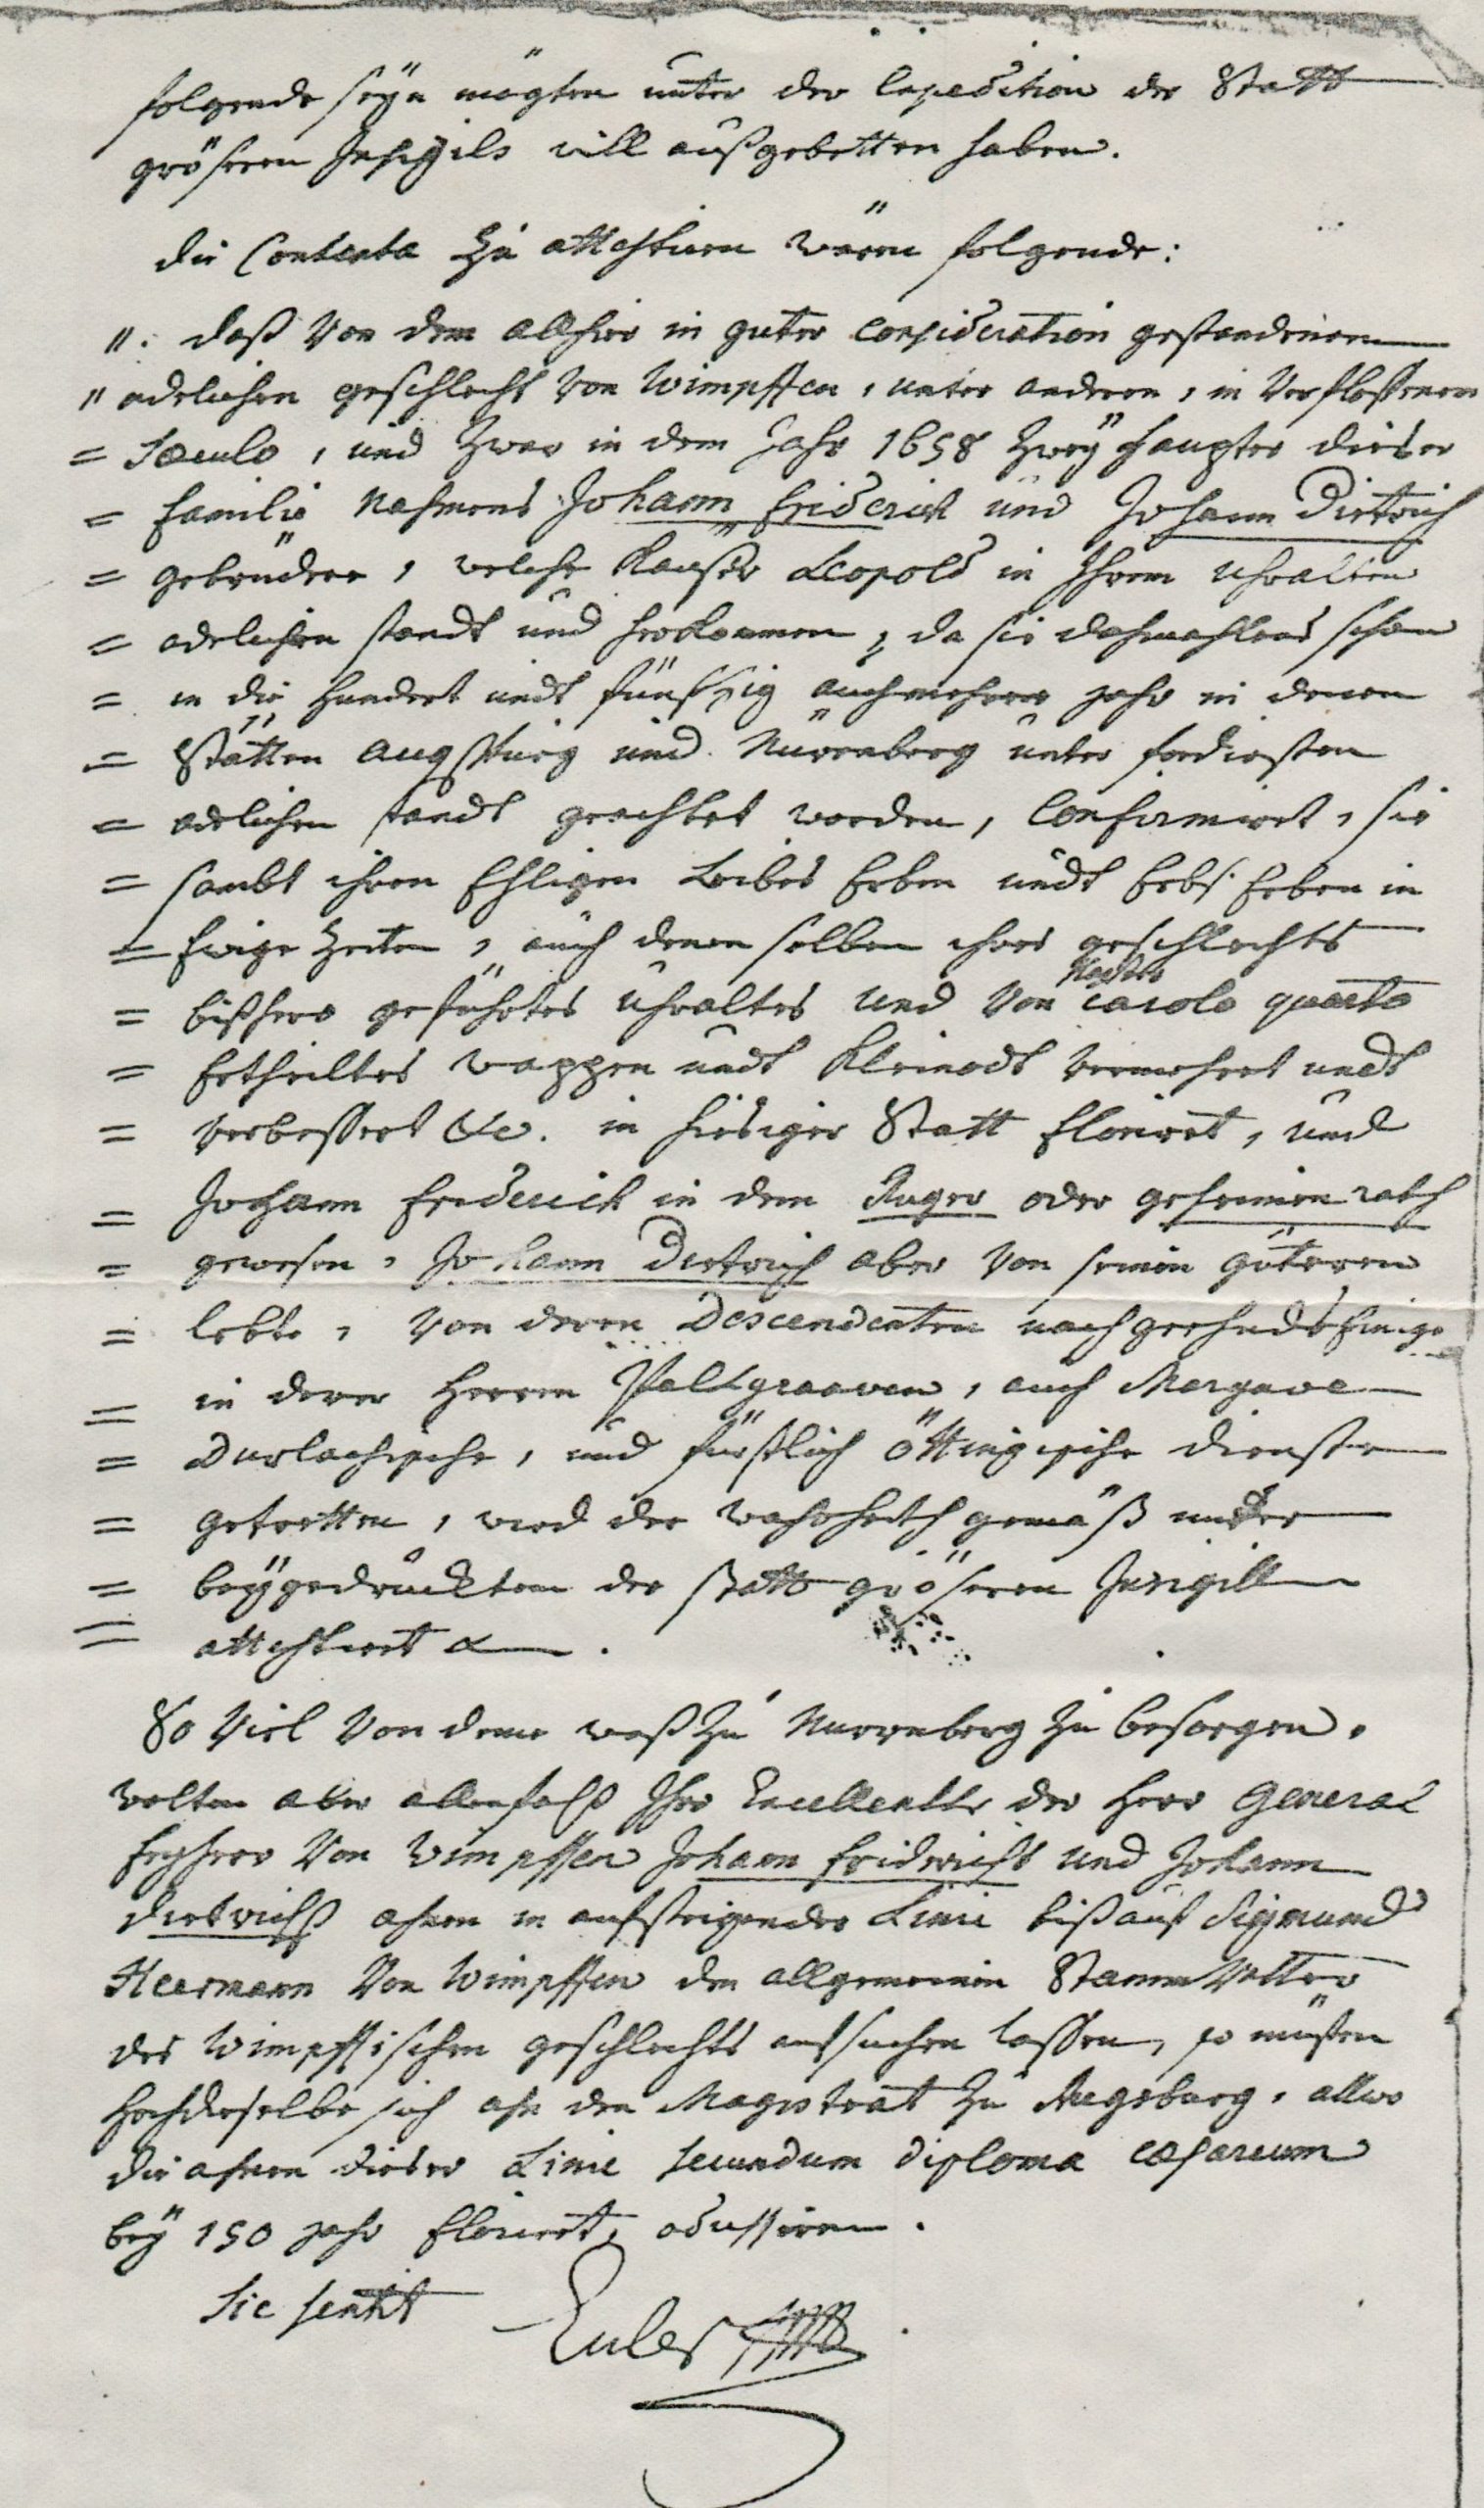 folgende seÿn mögten unter der Expedition der Statt
gröseren Insigils will außgebetten haben.
die Contenta zu attestiren wären folgende:
". daß von dem allhier in guter Consideration gestandenen
" adelichen geschlecht von Wimpffen, unter anderen, in verfloßenem
= Sæculo, und zwar in dem Jahr 1658 zweÿ Häupter dieser
= familie Nahmens Johann Friderich und Johann Dietrich
= gebrüdere, welche Kaÿser Leopold in Ihrem uhralten
= adelichen standt und herkommen, da sie dahmahlens schon
= in die Hundert undt fünffzig auch mehrere jahr in denen
= Stätten Augspurg und Nürenberg unter fordersten
= adelichen standt geachtet worden, Confirmirt, sie
= sambt ihren Ehligen Leibes Erben undt Erbs Erben in
= Ewige Zeiten, auch denen selben ihres geschlechts
= bißhero geführtes uhraltes und von Kaÿser Carolo quarto
= Ertheiltes wappen undt Kleinodt vermehret undt
= verbessert &c. in hiesiger Statt florirt, und
= Johann Friderich in dem Ruger oder geheimen rath
= gewesen, Johann Dietrich aber von seinen güteren
= lebte, von deren Descendenten nachgehends Einige
= in derer Herren Paltzgraaven, auch Marggrave
= Durlachische, und fürstlich öttingische Dienste
= getretten, wird der wahrheith gemäß under
= beÿgedrucktem der statt gröseren Insigill
= attestirt &.
So viel von deme waß zu Nurrenberg zu besorgen.
wolten aber allenfalß Ihro Excellentz der Herr General
Freÿherr von Wimpffen Johann Fridrichs und Johann
Dietrichß ahnen in aufsteigender Linie biß auf Sigmund
Heermann von Wimpffen den allgemeinen Stamm Vatter
des Wimpffischen geschlechts aufsuchen lassen, so müsten
Hochdieselbe sich ahn den Magistrat zu Augsburg, allwo
die ahnen dieser Linie secundum diploma cæsareum
beÿ 150 jahr florirt, adressiren.
Sic sentit Euler